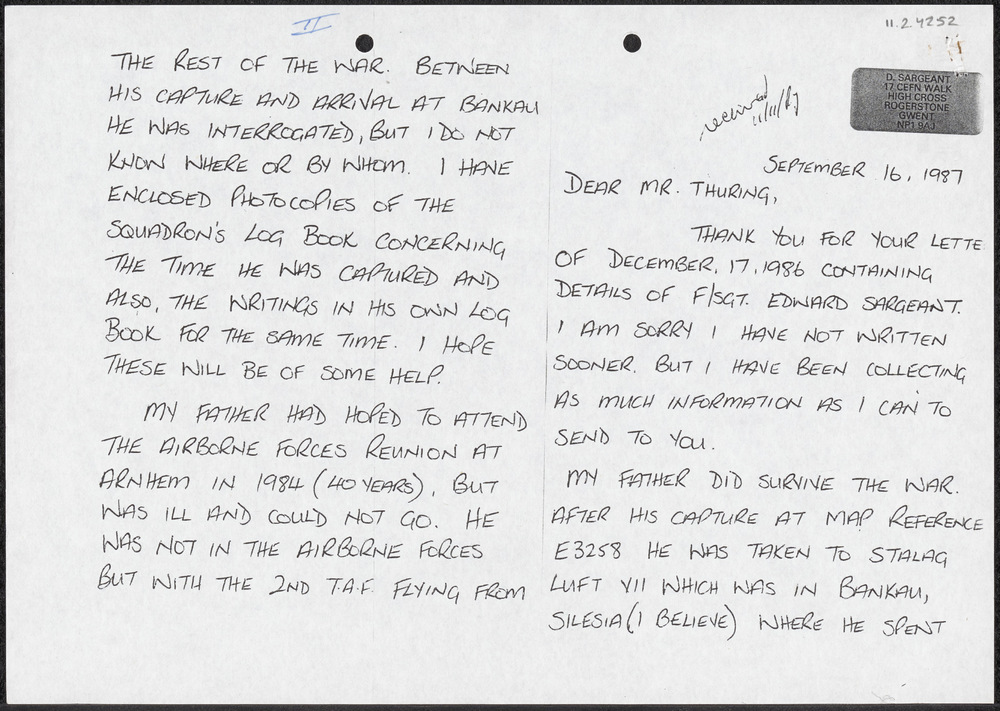 11.2.4252
D. SARGEANT
17 CEFN WALK
HIGH CROSS
ROGERSTONE
GWENT
NP1 9AJ
received
11/11/87
SEPTEMBER 16, 1987
DEAR MR. THURING,
THANK YOU FOR YOUR LETTE
OF DECEMBER, 17, 1986 CONTAINING
DETAILS OF F/SGT. EDWARD SARGEANT.
I AM SORRY I HAVE NOT WRITTEN
SOONER. BUT I HAVE BEEN COLLECTING
AS MUCH INFORMATION AS I CAN TO
SEND TO YOU.
MY FATHER DID SURVIVE THE WAR.
AFTER HIS CAPTURE AT MAP REFERENCE
E3258 HE WAS TAKEN TO STALAG
LUFT VII WHICH WAS IN BANKAU,
SILESIA (I BELIEVE) WHERE HE SPENT
II
THE REST OF THE WAR. BETWEEN
HIS CAPTURE AND ARRIVAL AT BANKAU
HE WAS INTERROGATED, BUT I DO NOT
KNOW WHERE OR BY WHOM. I HAVE
ENCLOSED PHOTOCOPIES OF THE
SQUADRON'S LOG BOOK CONCERNING
THE TIME HE WAS CAPTURED AND
ALSO, THE WRITINGS IN HIS OWN LOG
BOOK FOR THE SAME TIME. I HOPE
THESE WILL BE OF SOME HELP.
MY FATHER HAD HOPED TO ATTEND
THE AIRBORNE FORCES REUNION AT
ARNHEM IN 1984 (40 YEARS), BUT
WAS ILL AND COULD NOT GO. HE
WAS NOT IN THE AIRBORNE FORCES
BUT WITH THE 2ND T.A.F. FLYING FROM